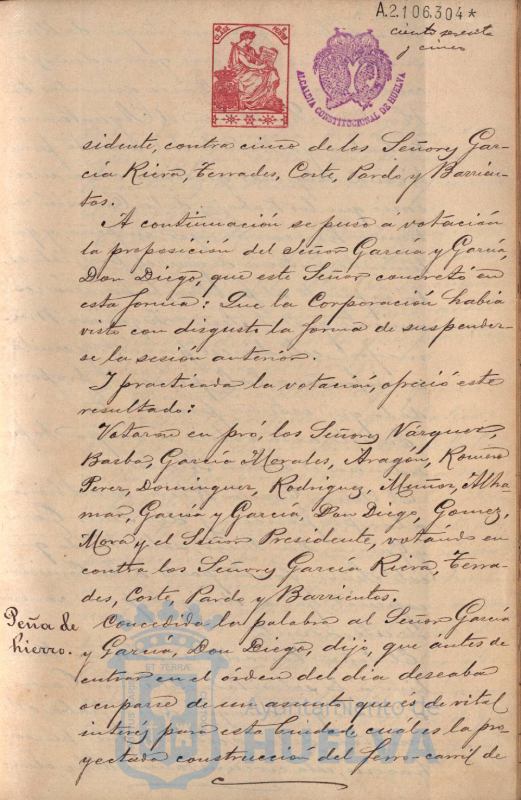 A.2.106.304*
ciento sesenta
y cinco
ALCALDIA CONSTITUCIONAL DE HUELVA
sidente, contra cinco de los Señores Gar-
cía Riera, Terrades, Corte, Pardo y Barrien-
tos.
A continuación se puso á votación
la proposición del Señor García y García,
Don Diego, que este Señor concretó en
esta forma: Que la Corporación había
visto con disgusto la forma de suspender-
se la sesión anterior.
I practicada la votación, ofreció este
resultado:
Votaron en pró, los Señores Vázquez,
Barba, García Morales, Aragón, Romero
Perez, Dominguez, Rodriguez, Muñoz, Alha-
mar, García y García, Don Diego, Gomez,
Mora y el Señor Presidente, votando en
contra los Señores García Riera, Terra-
des, Corte, Pardo y Barrientos.
Peña de
hierro.
Concedida la palabra al Señor García
y García, Don Diego, dijo, que ántes de
entrar en el órden del dia deseaba
ocuparse de un asunto que es de vital
interés para esta Ciudad cual es la pro-
yectada construcción del ferro-carril de
Ayuntamiento de
HUELVA